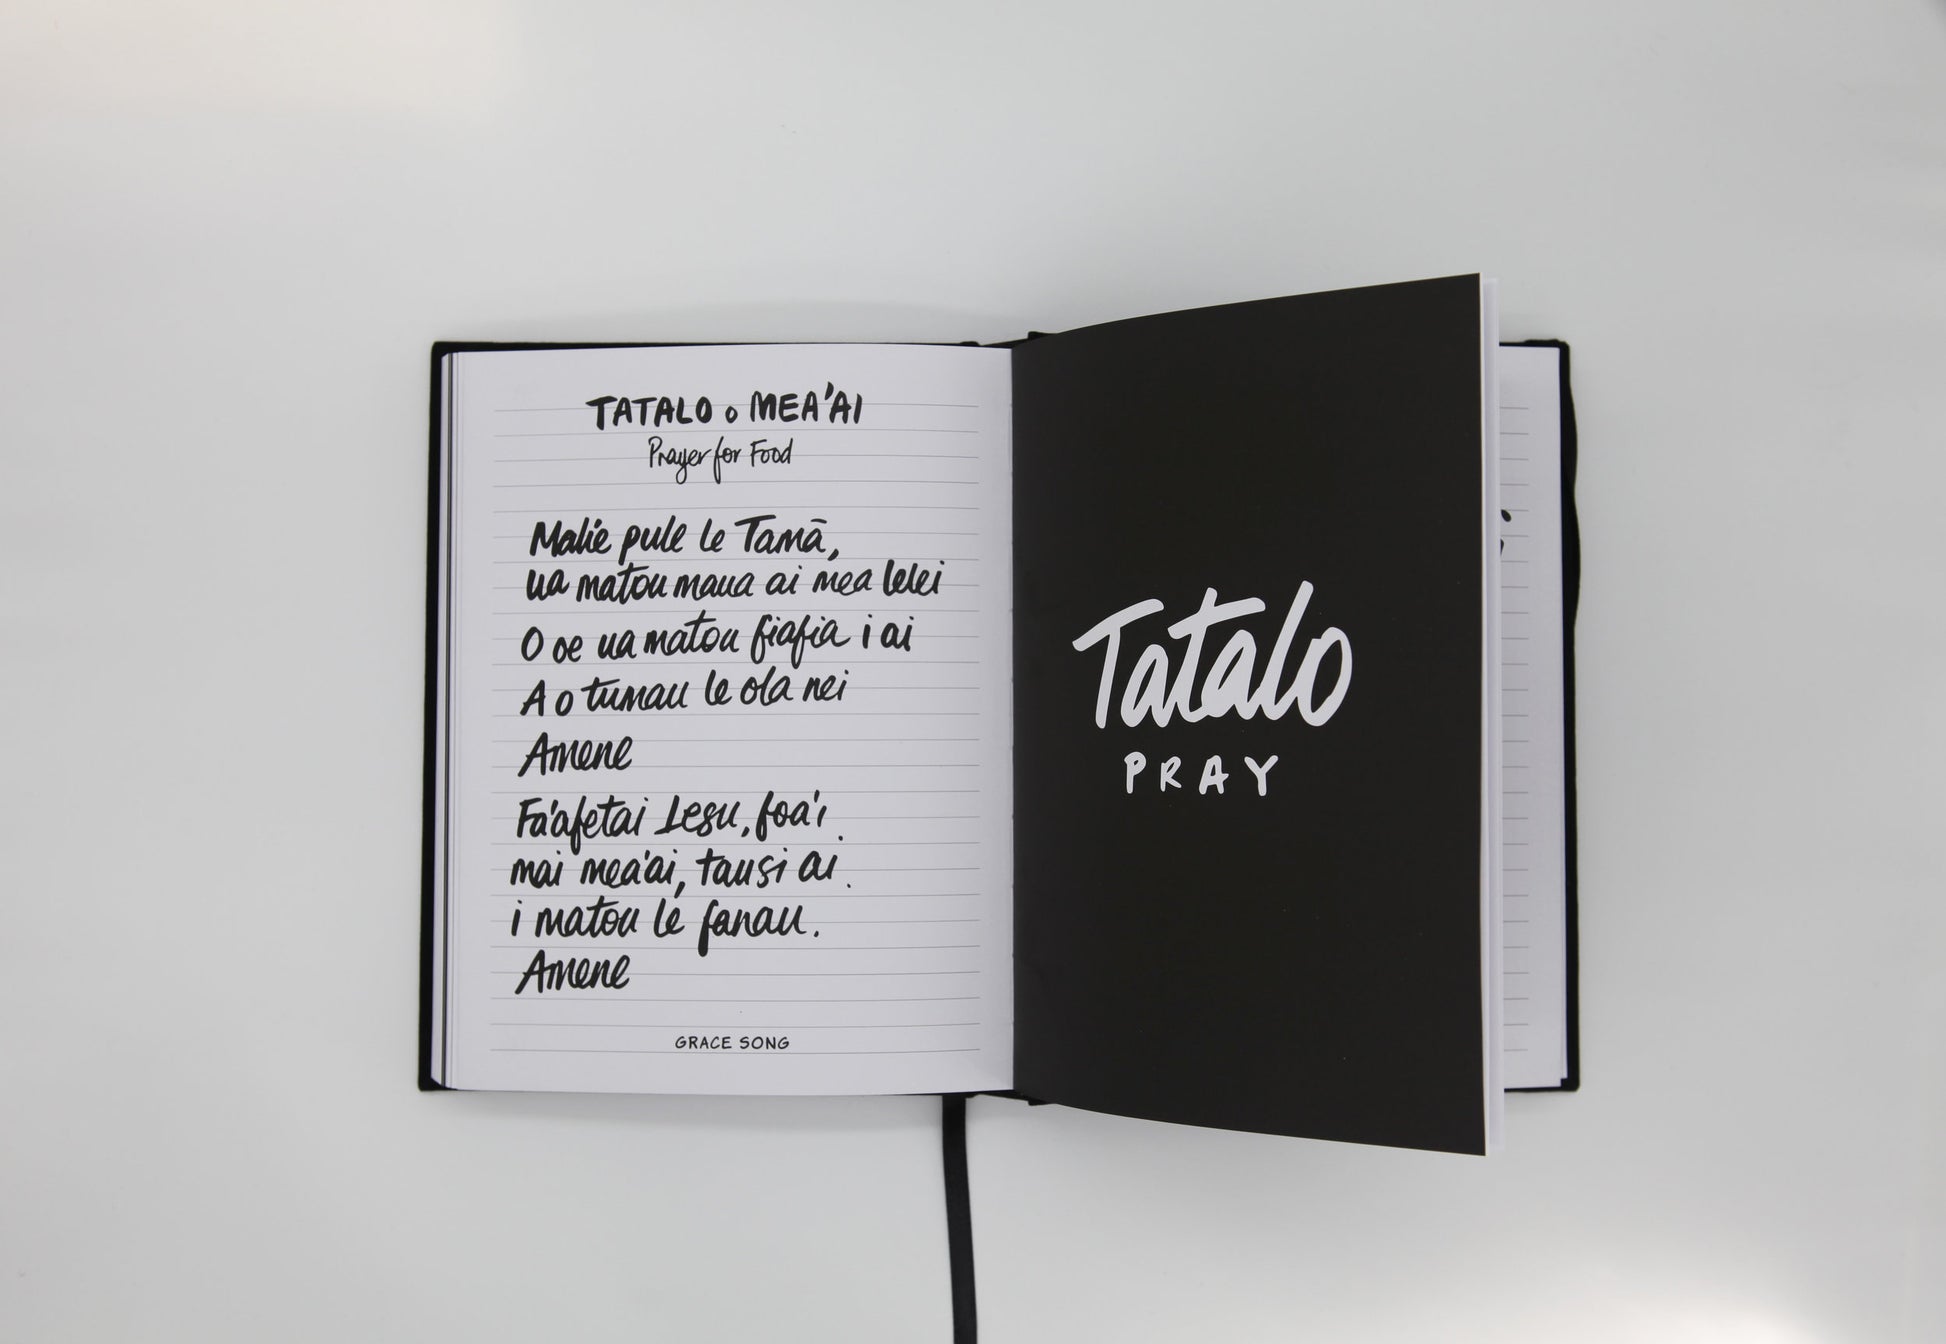 TATALO o MEA'AI
Prayer for Food
Malie pule le Tamā,
ua matou maua ai mea lelei
O oe ua matou fiafia i ai
A o tumau le ola nei
Amene
Fa'afetai Iesu, foa'i
mai mea'ai, tausi ai
i matou le fanau.
Amene
GRACE SONG
Tatalo
PRAY